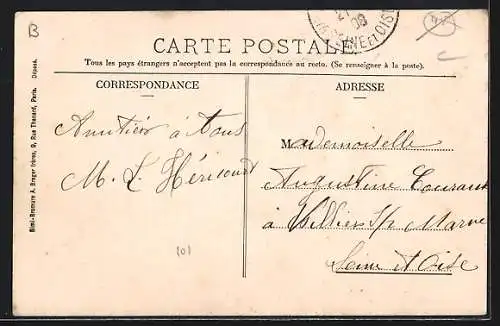 B
CARTE POSTALE
SEINE ET OISE
Tous les pays étrangers n'acceptent pas la correspondance au recto. (Se renseigner à la poste).
CORRESPONDANCE
ADRESSE
Amitiés à tous
M. L. Héricourt
Mademoiselle
Augustine Courant
à Villiers S/ Marne
Seine et Oise
101
Simi-Bromure A. Breger frères, 9, Rue Thénard, Paris. Déposé.